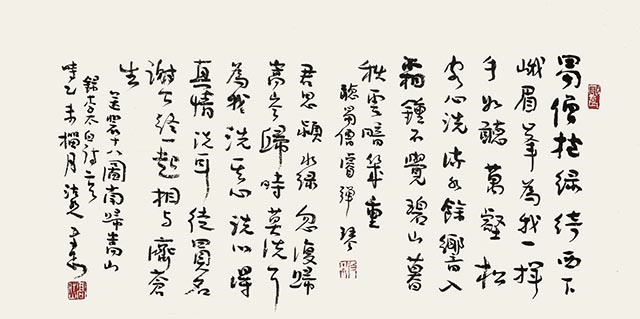 蜀僧抱綠綺西下
峨眉峯為我一揮
手如聽萬壑松
客心洗流水餘響入
霜鐘不覺碧山暮
秋雲暗幾重
聽蜀僧濬彈琴
君思潁水綠忽復歸
嵩岑歸時莫洗耳
為我洗其心洗心得
真情洗耳徒買名
謝公終一起相與濟蒼
生
送裴十八圖南歸嵩山
錄李太白詩二首
時乙未 月